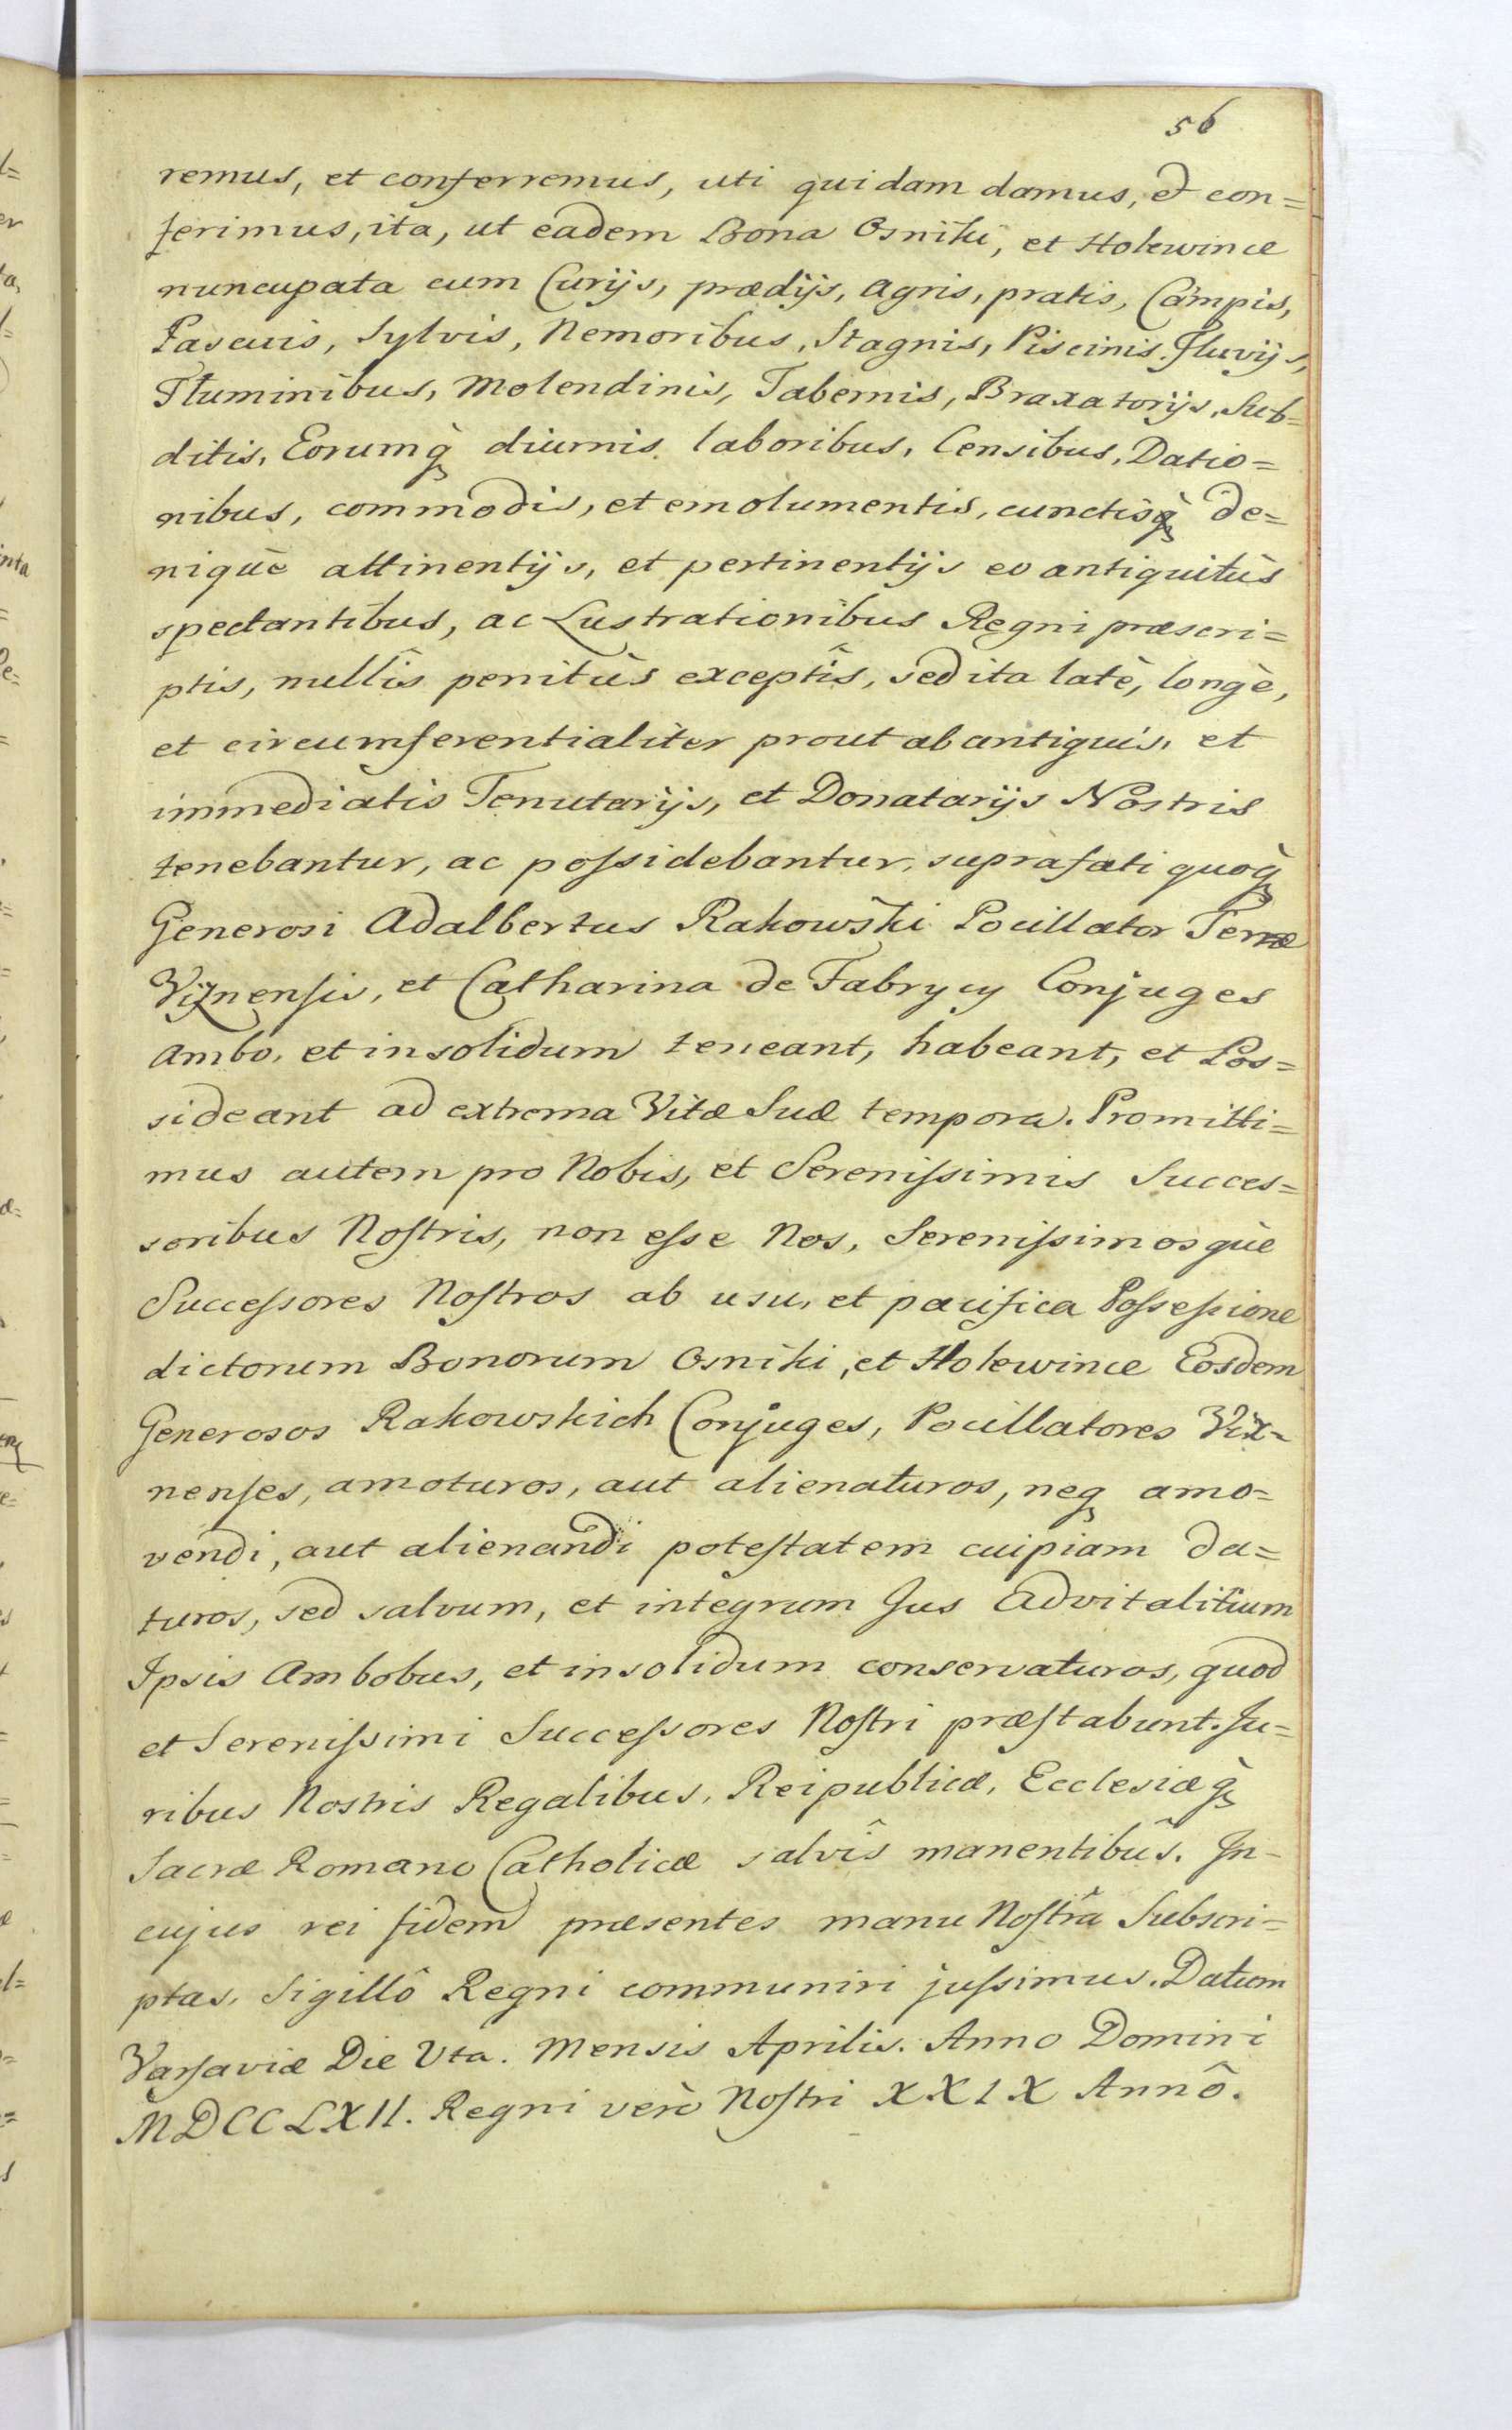 56
remus, et conferremus, uti quidam damus, et con=
ferimus, ita, ut eadem Bona Osniki, et Holewince
nuncupata cum Curijs, prædijs, agris, pratis, Campis,
Pascuis, Sylvis, Nemoribus, Stagnis, Piscinis, Fluvijs,
Fluminibus, Molendinis, Tabernis, Braxatorijs, Sub=
ditis, Eorumq̀ diurnis laboribus, Censibus, Datio=
nibus, commodis, et emolumentis, cunctisq̀ de=
niquè attinentijs, et pertinentijs eo antiquitùs
spectantibus, ac Lustrationibus Regni præscri=
ptis, nullîs penitùs exceptîs, sed ita latè, longè,
et circumferentialitèr prout ab antiquis, et
immediatis Tenutarijs, et Donatarijs Nostris
tenebantur, ac possidebantur, suprafati quoq̀
Generosi Adalbertus Rakowski Pocillator Terræ
Viznensis, et Catharina de Fabrycy Conjuges
ambo, et in solidum teneant, habeant, et Pos=
sideant ad extrema Vitæ Suæ tempora. Promitti=
mus autem pro Nobis, et Serenissimis Succes=
soribus Nostris, non esse Nos, Serenissimosquè
Successores Nostros ab usu, et pacifica Possessione
dictorum Bonorum Osniki, et Holewince Eosdem
Generosos Rakowskich Conjuges, Pocillatores Viz=
nenses, amoturos, aut alienaturos, neq amo=
vendi, aut alienandi potestatem cuipiam da=
turos, sed salvum, et integrum Jus Advitalitium
Ipsis Ambobus, et in solidum conservaturos, quod
et Serenissimi Successores Nostri præstabunt. Ju=
ribus Nostris Regalibus, Reipublicæ, Ecclesiæq̀
Sacræ Romano Catholicæ salvîs manentibûs. In=
cujus rei fidem præsentes manu Nostrâ Subscri=
ptas, Sigillô Regni communiri jussimus. Datum
Varsaviæ Die Vta. Mensis Aprilis. Anno Domini
MDCCLXII. Regni verò Nostri XXIX Annô.